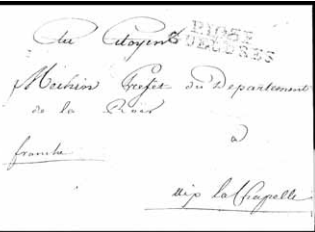 Au Citoyen
Mechin Prefet du Departement
de la Roer
a
franche
aix la Chapelle